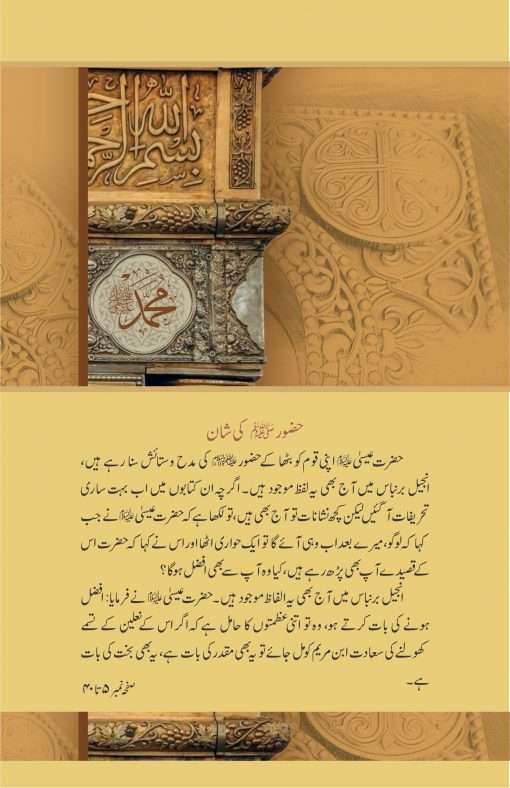 بسم الله الرحم
محمد
حضور ﷺ کی شان
حضرت عیسیٰ علیہ السلام اپنی قوم کو بٹھا کے حضور ﷺ کی مدح و ستائش سنا رہے ہیں،
انجیل برنباس میں آج بھی یہ لفظ موجود ہیں۔ اگرچہ ان کتابوں میں اب بہت ساری
تحریفات آ گئیں لیکن کچھ نشانات تو آج بھی ہیں، تو لکھا ہے کہ حضرت عیسیٰ علیہ السلام نے جب
کہا کہ لوگو، میرے بعد اب وہی آئے گا تو ایک حواری اٹھا اور اس نے کہا کہ حضرت اس
کے قصیدے آپ بھی پڑھ رہے ہیں، کیا وہ آپ سے بھی افضل ہوگا؟
انجیل برنباس میں آج بھی یہ الفاظ موجود ہیں۔ حضرت عیسیٰ علیہ السلام نے فرمایا: افضل
ہونے کی بات کرتے ہو، وہ تو اتنی عظمتوں کا حامل ہے کہ اگر اس کے نعلین کے تسمے
کھولنے کی سعادت ابن مریم کو مل جائے تو یہ بھی مقدر کی بات ہے، یہ بھی بخت کی بات
ہے۔
صفحہ نمبر ۵ تا ۴۰